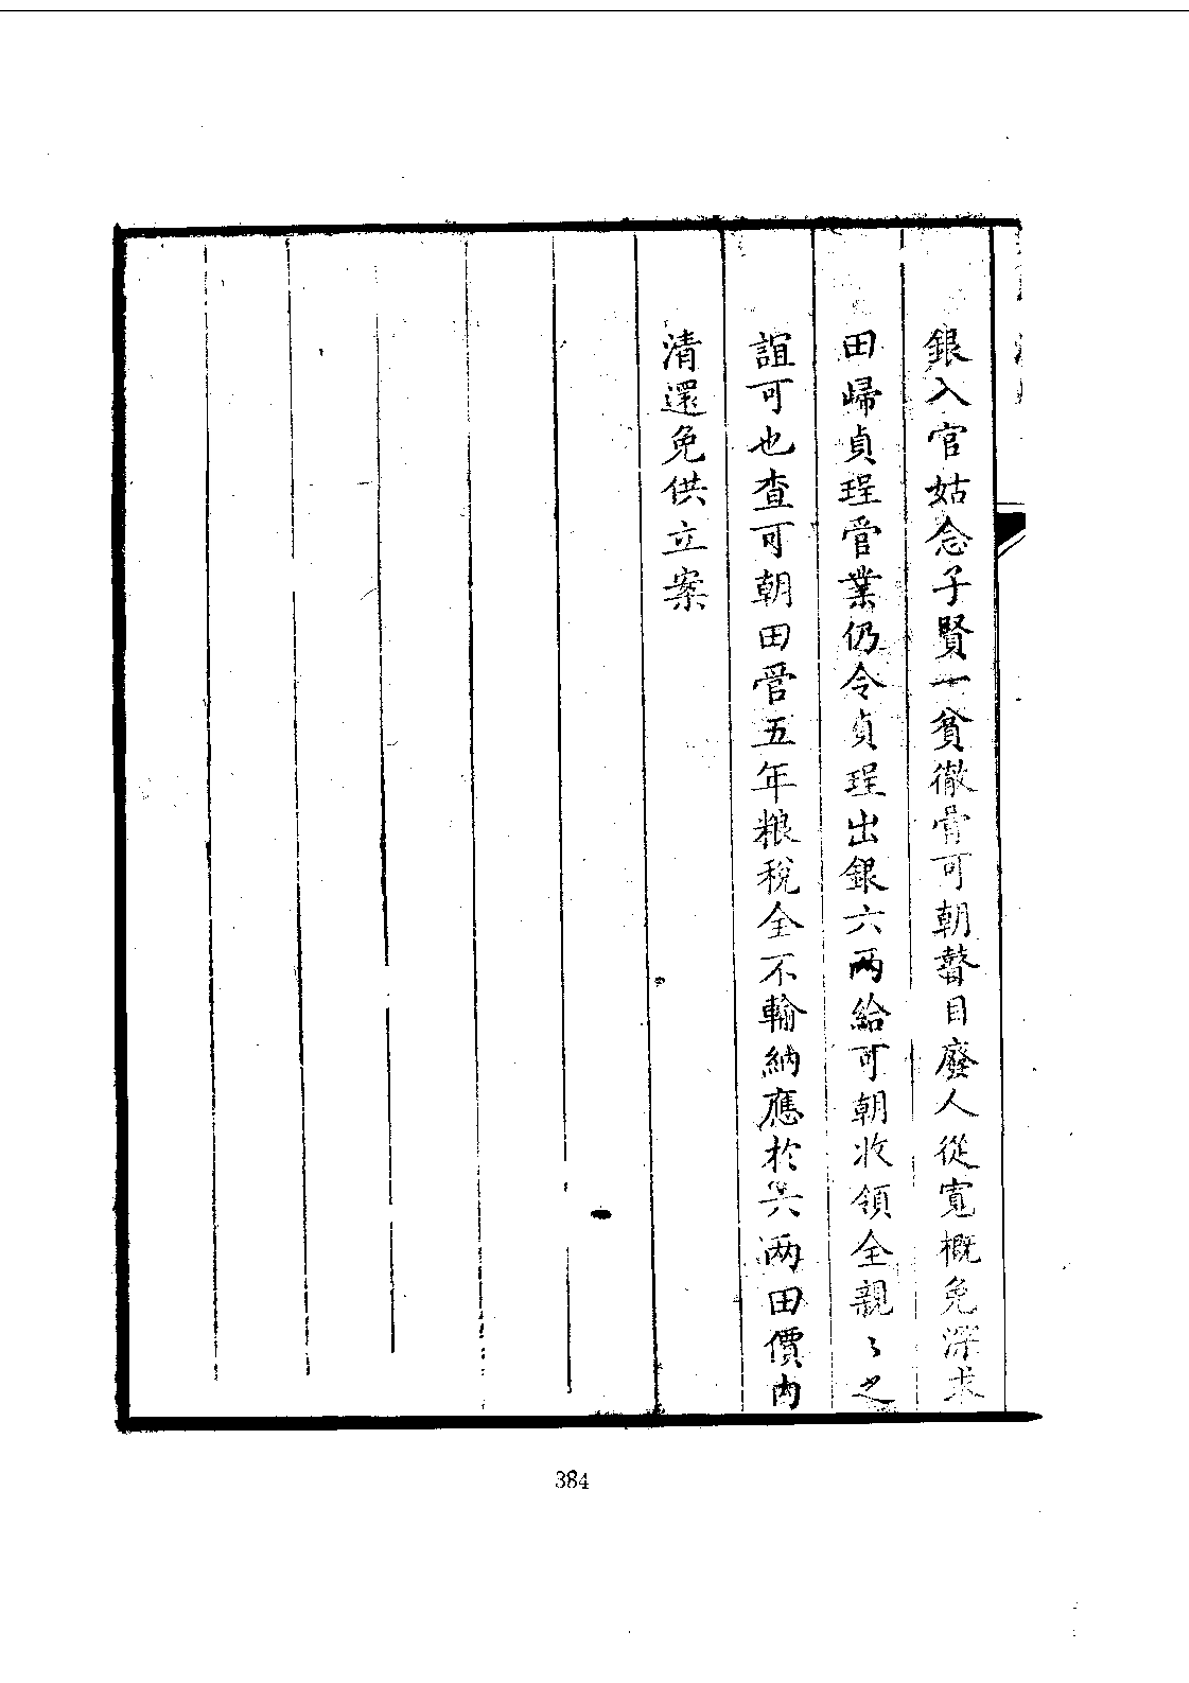 銀入官姑念子賢一貧徹骨可朝瞽目廢人從寬概免深求
田歸貞珵管業仍令貞珵出銀六两給可朝收領全親〻之
誼可也查可朝田管五年粮稅全不輸納應於六两田價內
清還免供立案
384